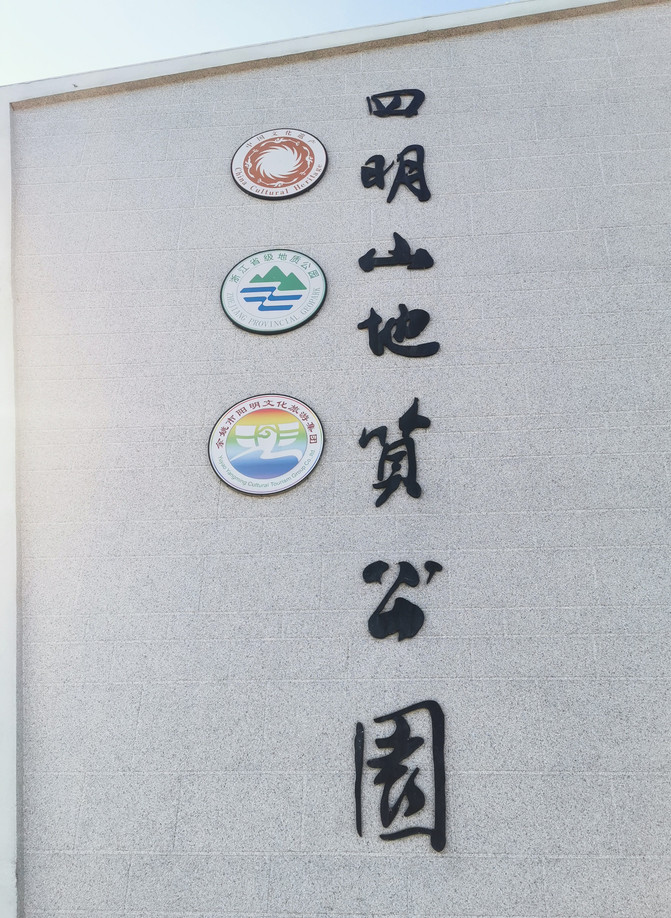 四明山地質公園
中国文化遗产
China Cultural Heritage
浙江省级地质公园
ZHEJIANG PROVINCIAL GEOPARK
余姚市阳明文化旅游集团
Yuyao Yangming Cultural Tourism Group Co.,ltd